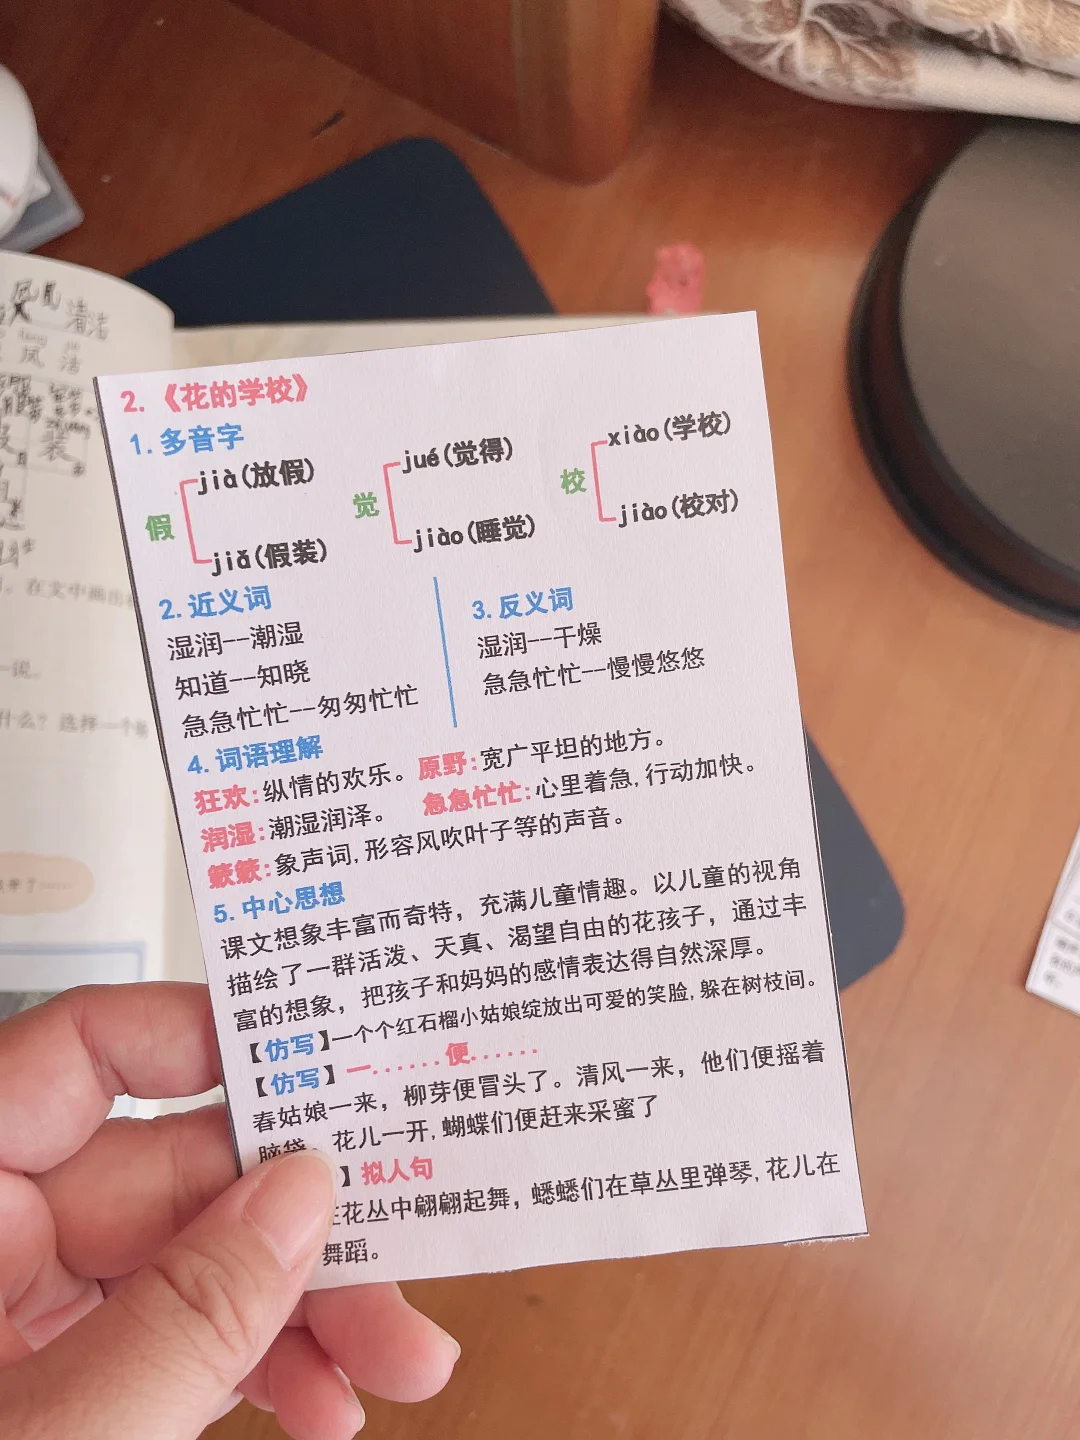 2.《花的学校》
1.多音字
假 jià(放假) jiǎ(假装)
觉 jué(觉得) jiào(睡觉)
校 xiào(学校) jiào(校对)
2.近义词
湿润--潮湿
知道--知晓
急急忙忙--匆匆忙忙
3.反义词
湿润--干燥
急急忙忙--慢慢悠悠
4.词语理解
狂欢:纵情的欢乐。原野:宽广平坦的地方。
润湿:潮湿润泽。 急急忙忙:心里着急,行动加快。
簌簌:象声词,形容风吹叶子等的声音。
5.中心思想
课文想象丰富而奇特，充满儿童情趣。以儿童的视角
描绘了一群活泼、天真、渴望自由的花孩子，通过丰
富的想象，把孩子和妈妈的感情表达得自然深厚。
【仿写】一个个红石榴小姑娘绽放出可爱的笑脸,躲在树枝间。
【仿写】一......便......
春姑娘一来，柳芽便冒头了。清风一来，他们便摇着
脑袋。花儿一开,蝴蝶们便赶来采蜜了
】拟人句
在花丛中翩翩起舞，蟋蟀们在草丛里弹琴,花儿在
舞蹈。
清洁
风 洁
装
在文中画出
什么？选择一个